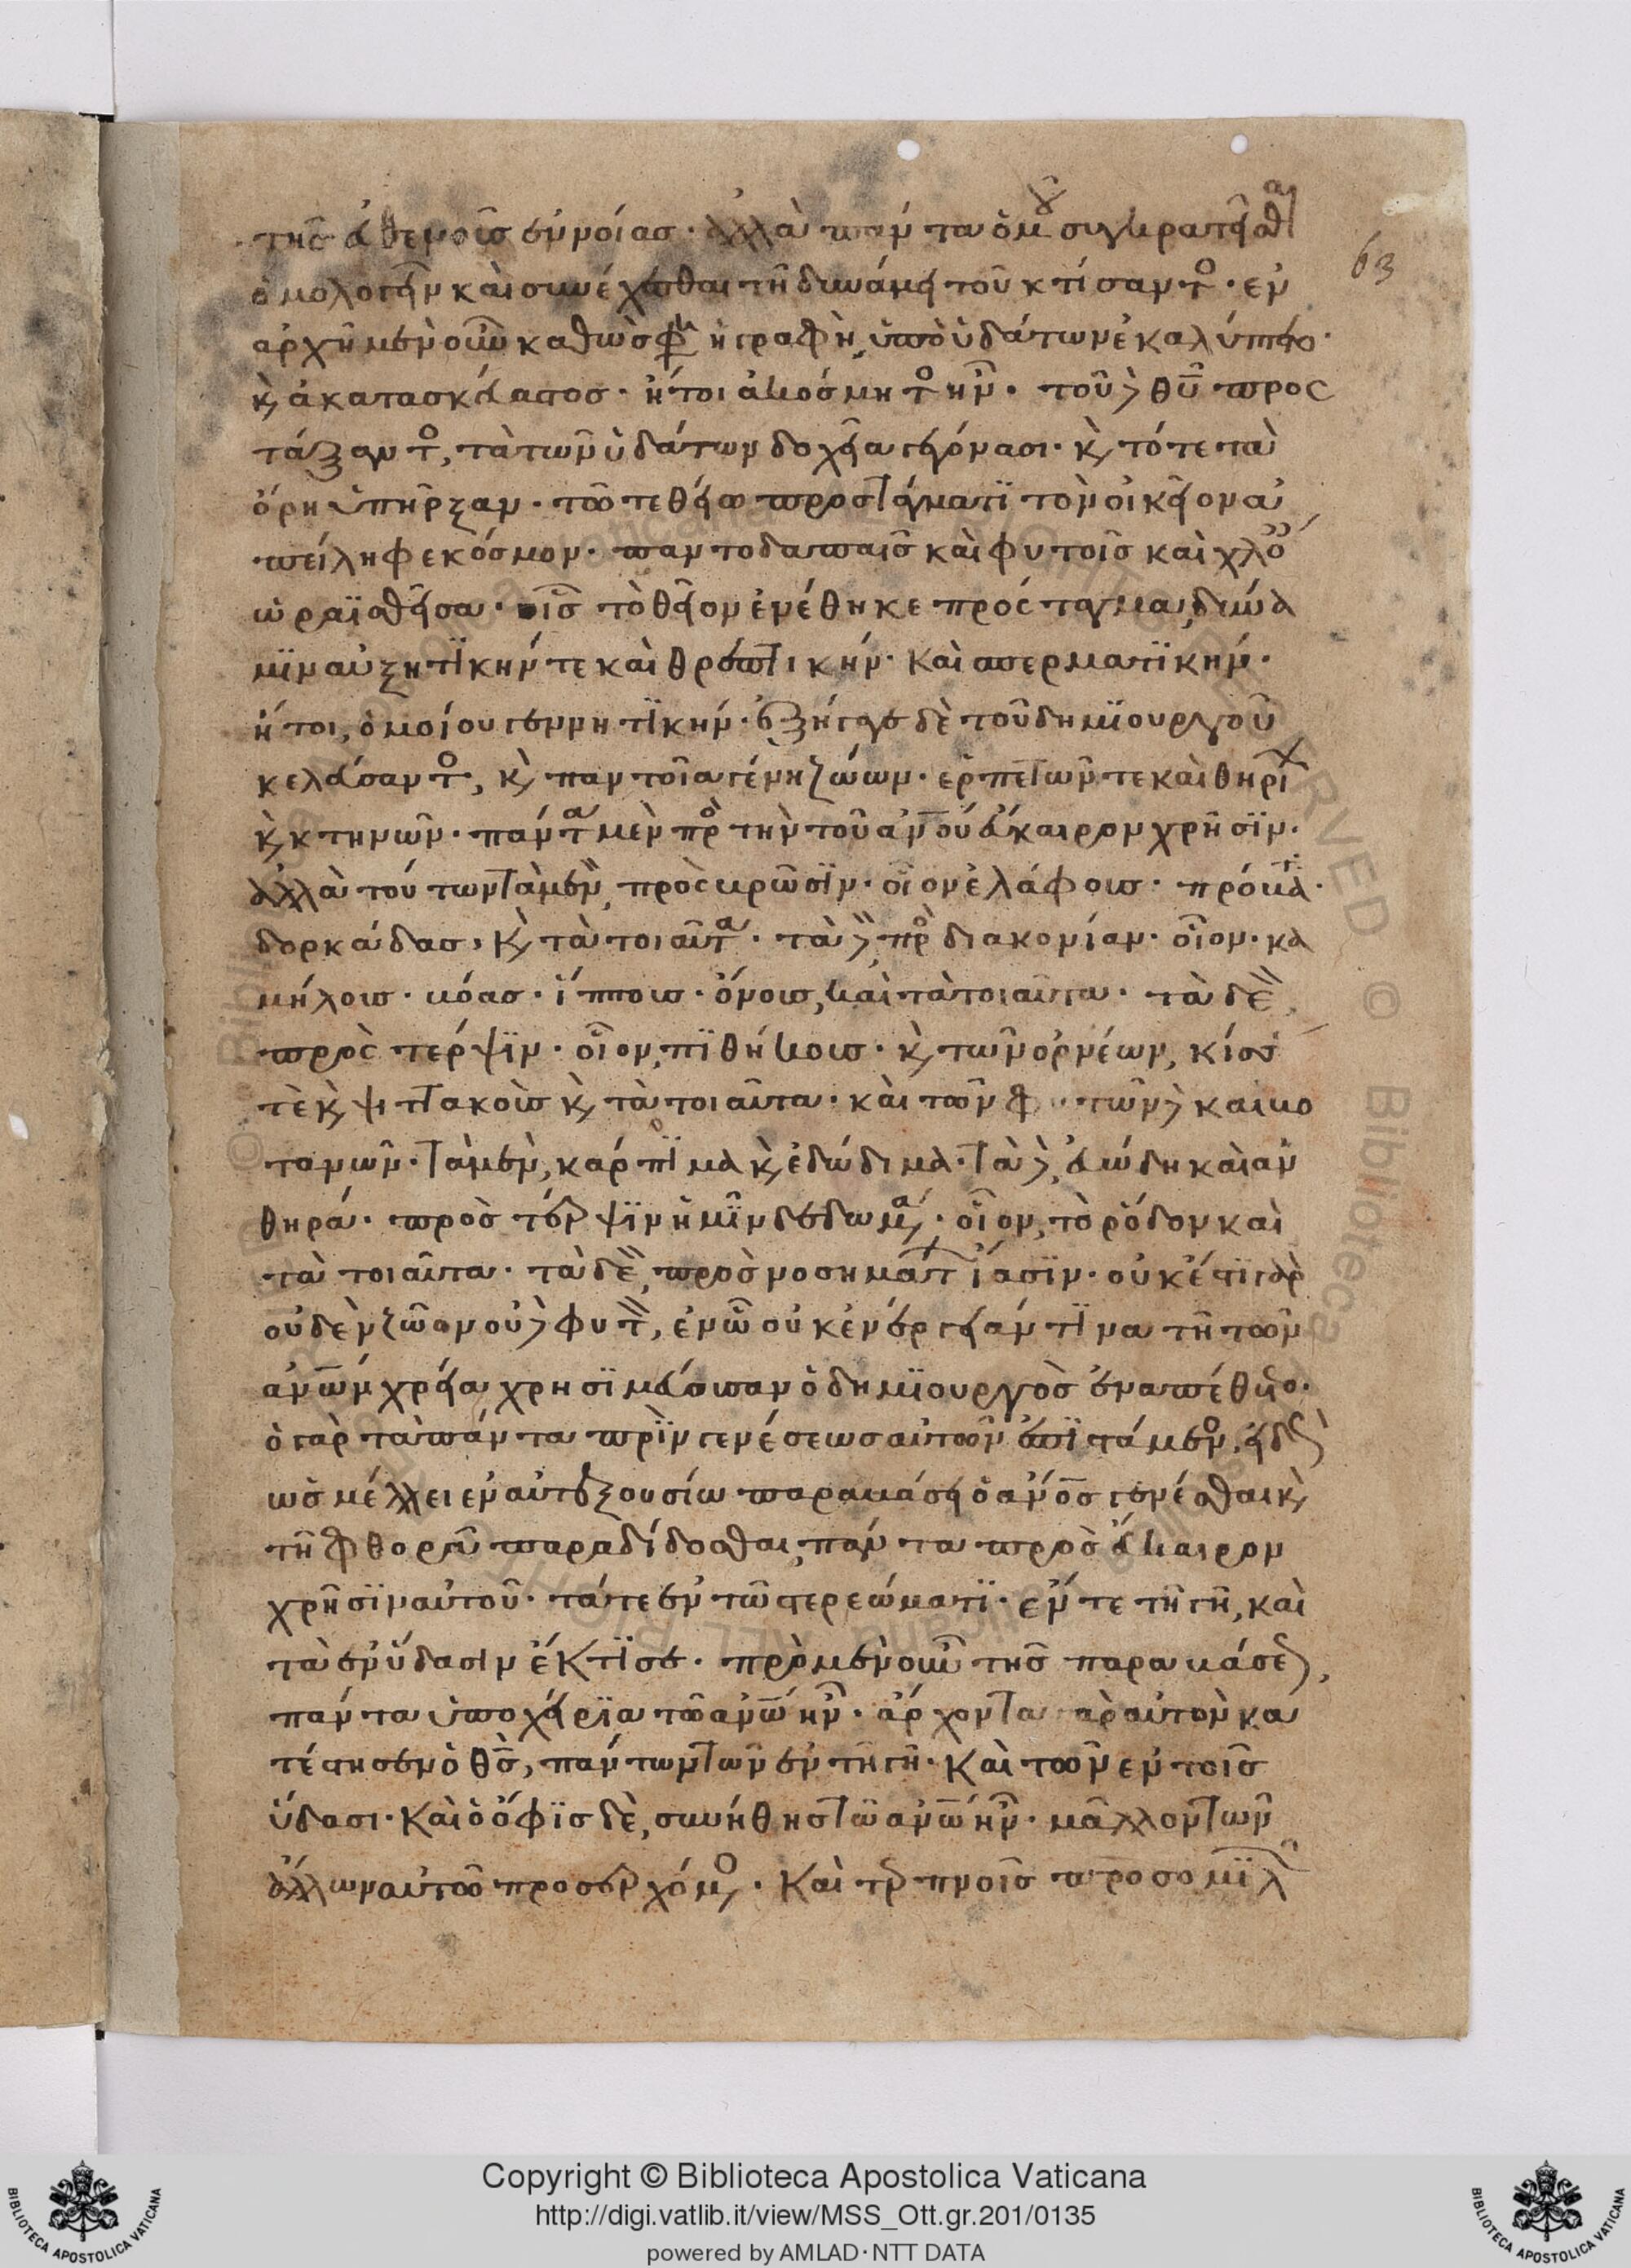 τῆς εὐσεβοῦς ἐννοίας· ἀλλὰ πάντα ὁμοῦ συγκρατεῖσθαι
63
ὁμολογεῖν καὶ συνέχεσθαι τῇ δυνάμει τοῦ κτίσαντος· ἐν
ἀρχῇ μὲν οὖν καθώς φησιν ἡ γραφὴ, ὑπὸ ὑδάτων ἐκαλύπτετο·
κ, ἀκατασκεύαστος· ἤτοι ἀκόσμητος ἦν· τοῦ δὲ θῦ προς
τάξαντος, τὰ τῶν ὑδάτων δοχεῖα γεγόνασι· κ, τότε τὰ
ὄρη ὑπῆρξαν· τῶ τε θείω προστάγματι τὸν οἰκεῖον ἀ
πείληφε κόσμον· παντοδαποῖς καὶ φυτοῖς καὶ χλόαις
ὡραϊσθεῖσα· οἷς τὸ θεῖον ἐνέθηκε πρόσταγμα, δύνα
μιν αὐξητικήν τε καὶ θρεπτικήν· καὶ σπερματικήν·
ἤτοι, ὁμοίου γεννητικήν· ἐξήγαγε δὲ τοῦ δημιουργοῦ
κελεύσαντος, κ, παντοῖα γένη ζώων· ἑρπετῶν τε καὶ θηρίων
κ, κτηνῶν· πάντα μὲν πρὸς τὴν τοῦ ἀνου εὔκαιρον χρῆσιν·
ἀλλὰ τούτων τὰ μὲν, πρὸς βρῶσιν· οἷον ἐλάφους· πρόβατα·
δορκάδας, κ, τὰ τοιαῦτα· τὰ δὲ, πρὸς διακονίαν· οἷον· κα
μήλους· βόας· ἵππους· ὄνους, καὶ τὰ τοιαῦτα· τὰ δὲ,
πρὸς τέρψιν· οἷον, πιθήκους· κ, τῶν ὀρνέων, κίσσας
τὲ κ, ψιττακοὺς κ, τὰ τοιαῦτα· καὶ τῶν φυτῶν δὲ καὶ βο
τανῶν· τὰ μὲν, κάρπιμα κ, ἐδώδιμα· τὰ δὲ, εὐώδη καὶ ἀν
θηρά· πρὸς τέρψιν ἡμῖν δεδομένα· οἷον, τὸ ῥόδον καὶ
τὰ τοιαῦτα· τὰ δὲ, πρὸς νοσημάτων ἴασιν· οὐκ ἔστι γὰρ
οὐδὲν ζῶον οὐδὲ φυτὸν, ἐν ὧ οὐκ ἐνέργειάν τινα τῇ τῶν
ἀνων χρεία χρησιμεύουσαν ὁ δημιουργὸς ἐναπέθετο·
ὁ γὰρ τὰ πάντα πρὶν γενέσεως αὐτῶν ἐπιστάμενος, εἰδὼς
ὡς μέλλει ἐν αὐτεξουσίω παραβάσει ὁ ἄνος γενέσθαι κ,
τῇ φθορᾷ παραδίδοσθαι, πάντα πρὸς εὔκαιρον
χρῆσιν αὐτοῦ· τά τε ἐν τῶ στερεώματι· ἔν τε τῇ γῇ, καὶ
τὰ ἐν ὕδασιν ἔκτισε· πρὸ μὲν οὖν τῆς παραβάσεως,
πάντα ὑποχείρια τῶ ἀνω ἦν· ἄρχοντα γὰρ αὐτὸν κα
τέστησεν ὁ θς, πάντων τῶν ἐν τῇ γῇ· καὶ τῶν ἐν τοῖς
ὕδασι· καὶ ὁ ὄφις δὲ, συνήθης τῶ ἀνω ἦν· μᾶλλον τῶν
ἄλλων αὐτῶ προσερχόμενος· καὶ τερπνοῖς προσομιλῶν
Copyright © Biblioteca Apostolica Vaticana
http://digi.vatlib.it/view/MSS_Ott.gr.201/0135
powered by AMLAD·NTT DATA